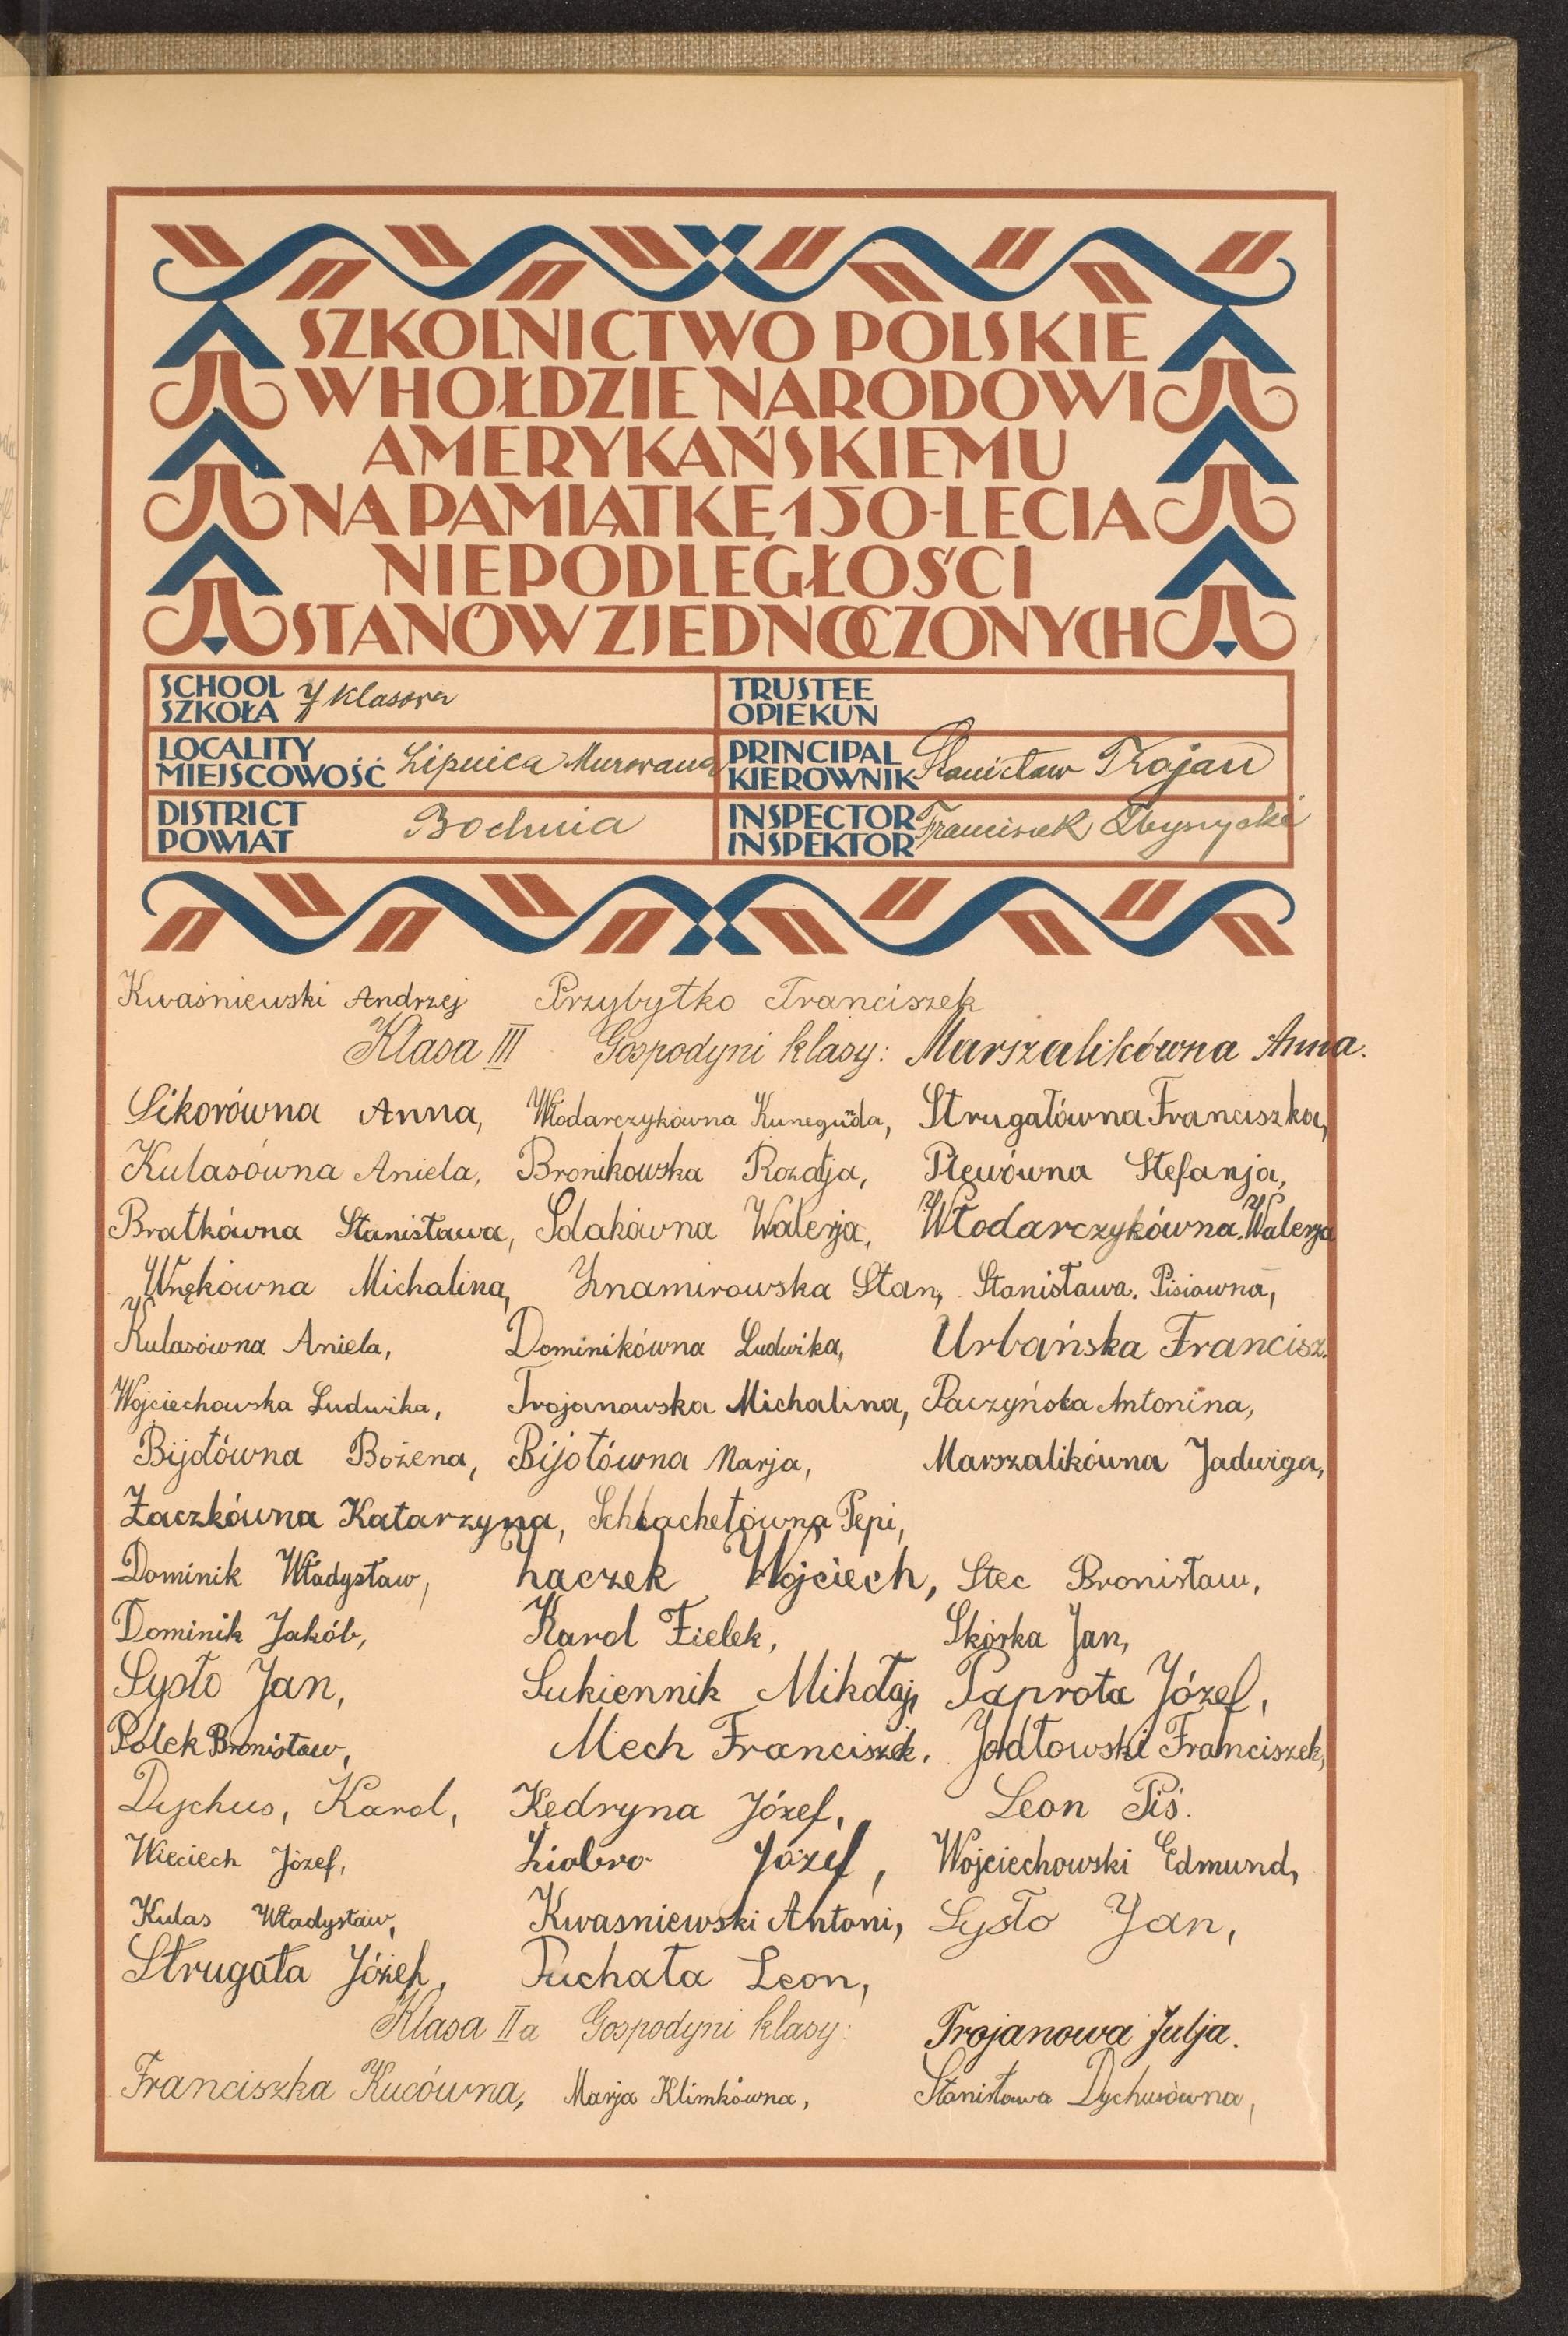 SZKOLNICTWO POLSKIE
W HOŁDZIE NARODOWI
AMERYKAŃSKIEMU
NA PAMIĄTKĘ 150-LECIA
NIEPODLEGŁOŚCI
STANÓW ZJEDNOCZONYCH
SCHOOL SZKOŁA 7 klasowa TRUSTEE OPIEKUN
LOCALITY MIEJSCOWOŚĆ Lipnica Murowana PRINCIPAL KIEROWNIK Stanisław Trojan
DISTRICT POWIAT Bochnia INSPECTOR INSPEKTOR Franciszek
Kwaśniewski Andrzej Przybytko Franciszek
Klasa III Gospodyni klasy: Marszalikówna Anna.
Sikorówna Anna, Włodarczykówna Kunegunda, Strugałówna Franciszka,
Kulasówna Aniela, Bronikowska Rozalja, Plewówna Stefanja,
Bratkówna Stanisława, Solakówna Walerja, Włodarczykówna Walerja
Wnękówna Michalina, Znamirowska Stan, Stanisława. Pisiówna,
Kulasówna Aniela, Dominikówna Ludwika, Urbańska Francisz.
Wojciechowska Ludwika, Trojanowska Michalina, Paczyńska Antonina,
Bijotówna Bożena, Bijotówna Marja, Marszalikówna Jadwiga,
Żaczkówna Katarzyna, Schlachetówna Pepi,
Dominik Władysław, Żaczek Wojciech, Stec Bronisław,
Dominik Jakób, Karol Fielek, Skórka Jan,
Sysło Jan, Sukiennik Mikołaj, Paprota Józef,
Polek Bronisław, Mech Franciszek. Jodłowski Franciszek,
Dychus, Karol, Kędryna Józef, Leon Piś.
Wieciech Józef, Ziobro Józef, Wojciechowski Edmund,
Kulas Władysław, Kwasniewski Antoni, Sysło Jan,
Strugała Józef, Puchała Leon,
Klasa II a Gospodyni klasy: Trojanowa Julja.
Franciszka Kucówna, Marja Klimkówna, Stanisława Dychusówna,